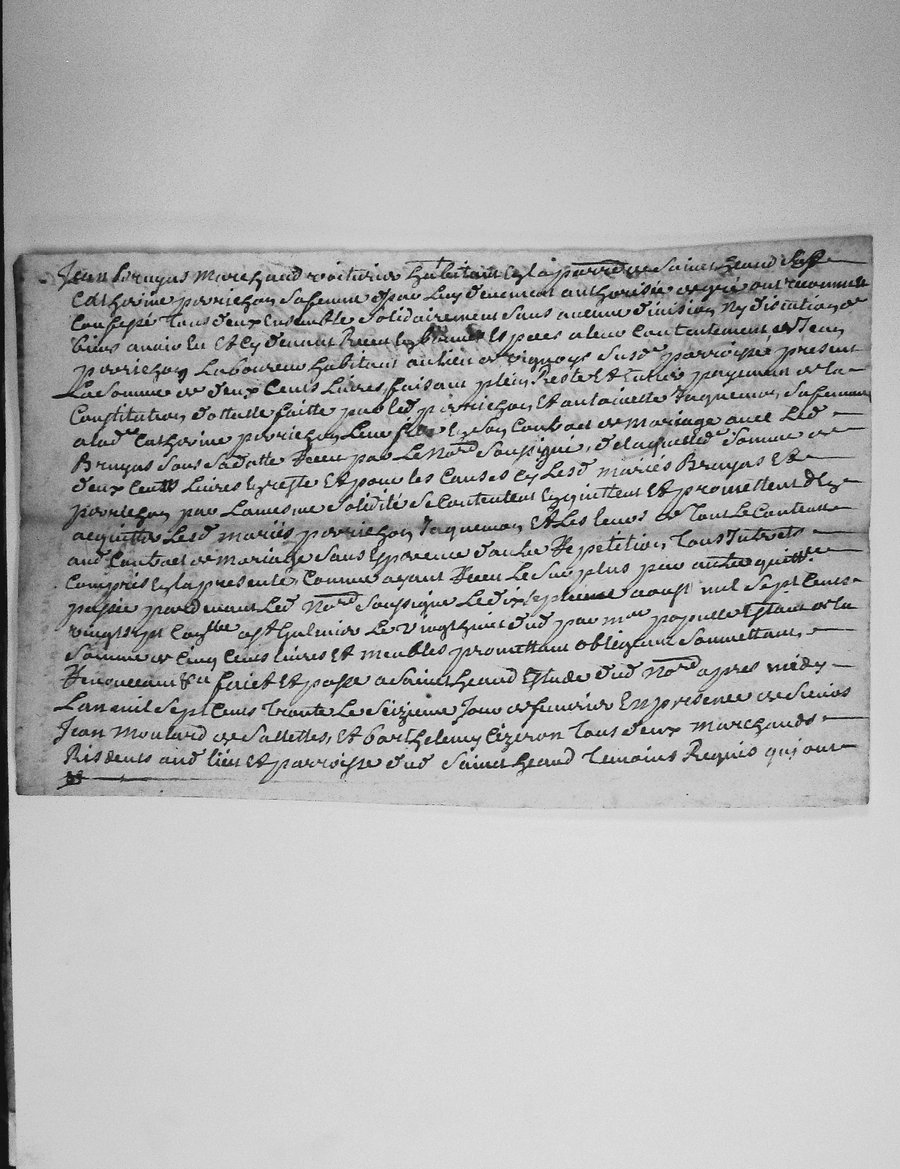 Jean Bruyas marchand voiturier habitant en la parro. de Saint heand
Catherine perrichon sa femme de par luy deuement authorisée de gré ont reconnu et
Confessé tous deux Ensemble solidairement sans aucune division ny discution de
biens avoir Eu et cy devant Receu En bonnes Especes a leur contantement de Jean
perrichon Laboureur habitant au lieu de susd. parroisse present
La somme de deux Cents Livres faisant plein Reste et Entier payement de la
Constitution dottalle faitte par led. perrichon et antoinette Jaquemon sa femme
a lad. Catherine perrichon Leur fille En son Contract de mariage avec Led.
Bruyas sous sa datte Receu par Le No.re soussigné, de laquelle d. somme de
deux Cents Livres En reste Et pour les Causes cy Lesd. mariés Bruyas Et
perrichon par La mesme solidité se Contentent En quittent Et promettent En
acquitter Lesd. mariés perrichon Jaquemon Et Les leurs de Tout Le Contenu
aud. Contract de mariage sans Esperance d'autre Repetition, Tous Interets
Compris En la presente, Comme ayant Receu Le surplus par autre quitt.ce
passée pardevant Led. No.re soussigné Le dix septieme aoust mil sept Cents
vingt sept Con.lée a St Galmier Le vingt huit dud. par M.re populle Estant de la
somme de Cinq Cents livres Et meubles promettant obligeant soumettant,
Renonceant &a faict Et passé a Saint heand Estude dud. No.re apres midy
L'an mil sept Cents trante Le seizieme Jour de fevrier En presence de sieurs
Jean Moulard de Sallettes, Et barthelemy Cizeron Tous deux marchands
Residents aud. lieu Et parroisse dud. Saint heand Temoins Requis qui ont